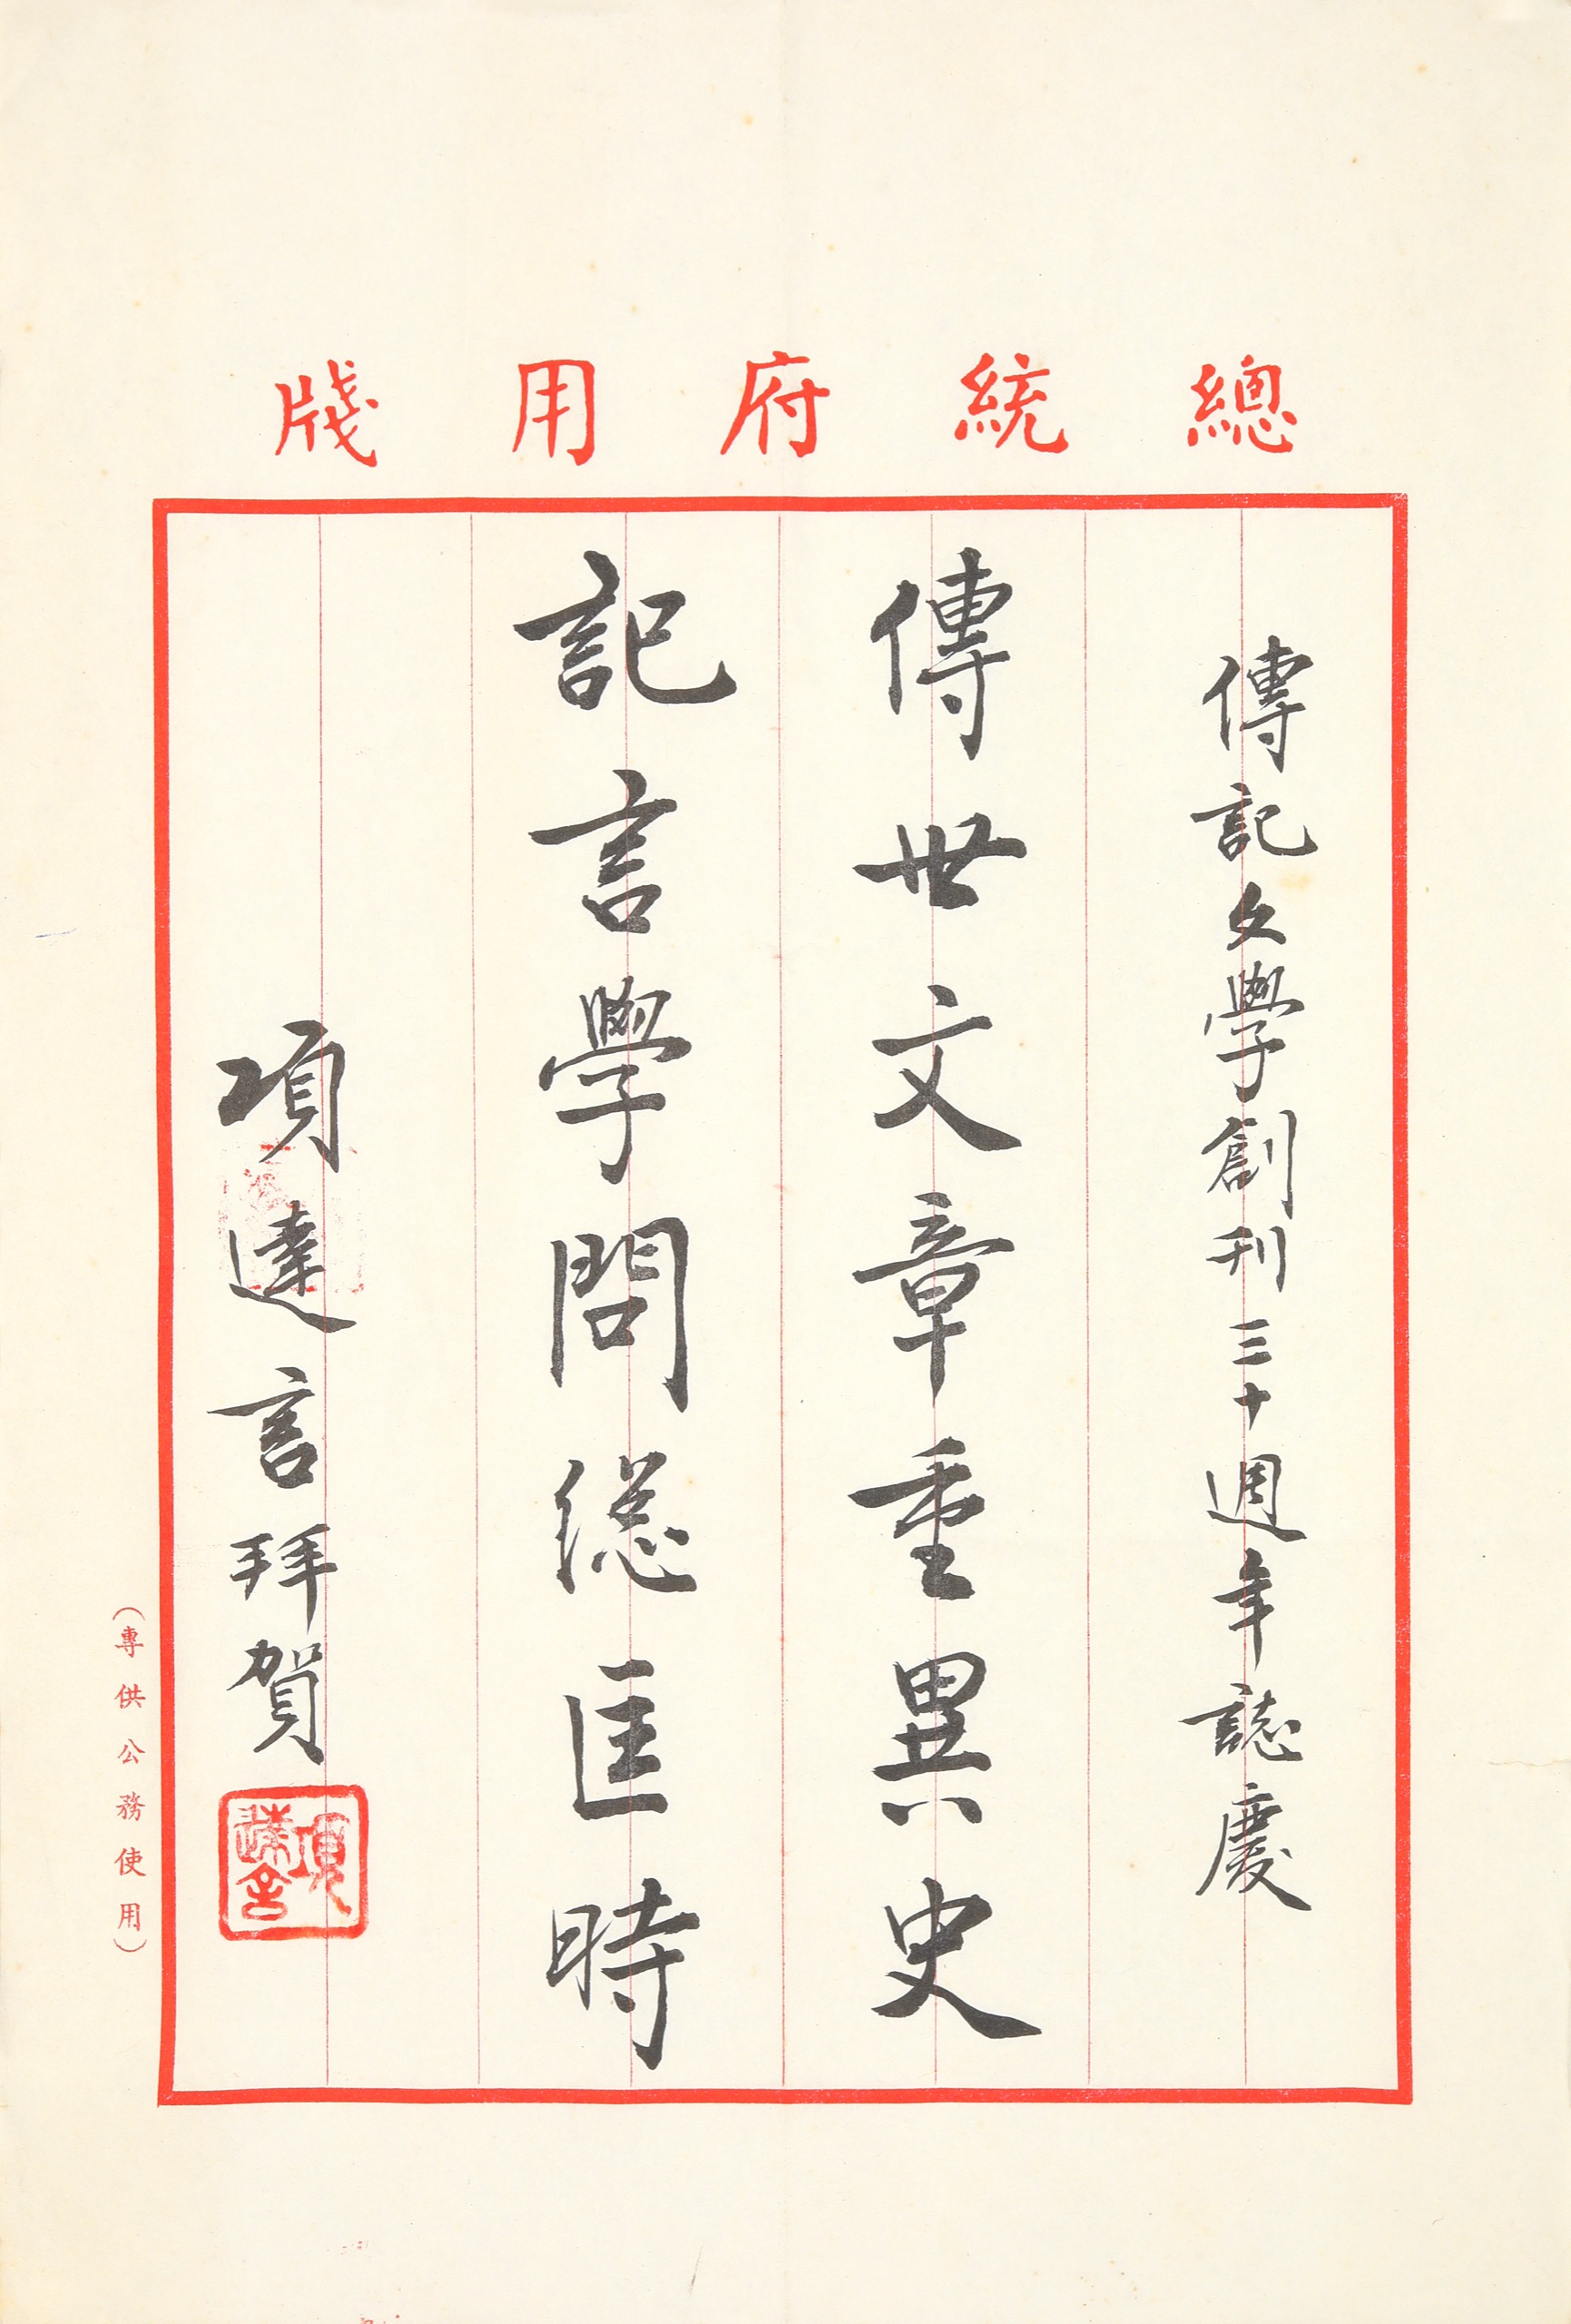 總統府用牋
傳記文學創刊三十週年誌慶
傳世文章重異史
記言學問總匡時
項達言拜賀
項達言
(專供公務使用)